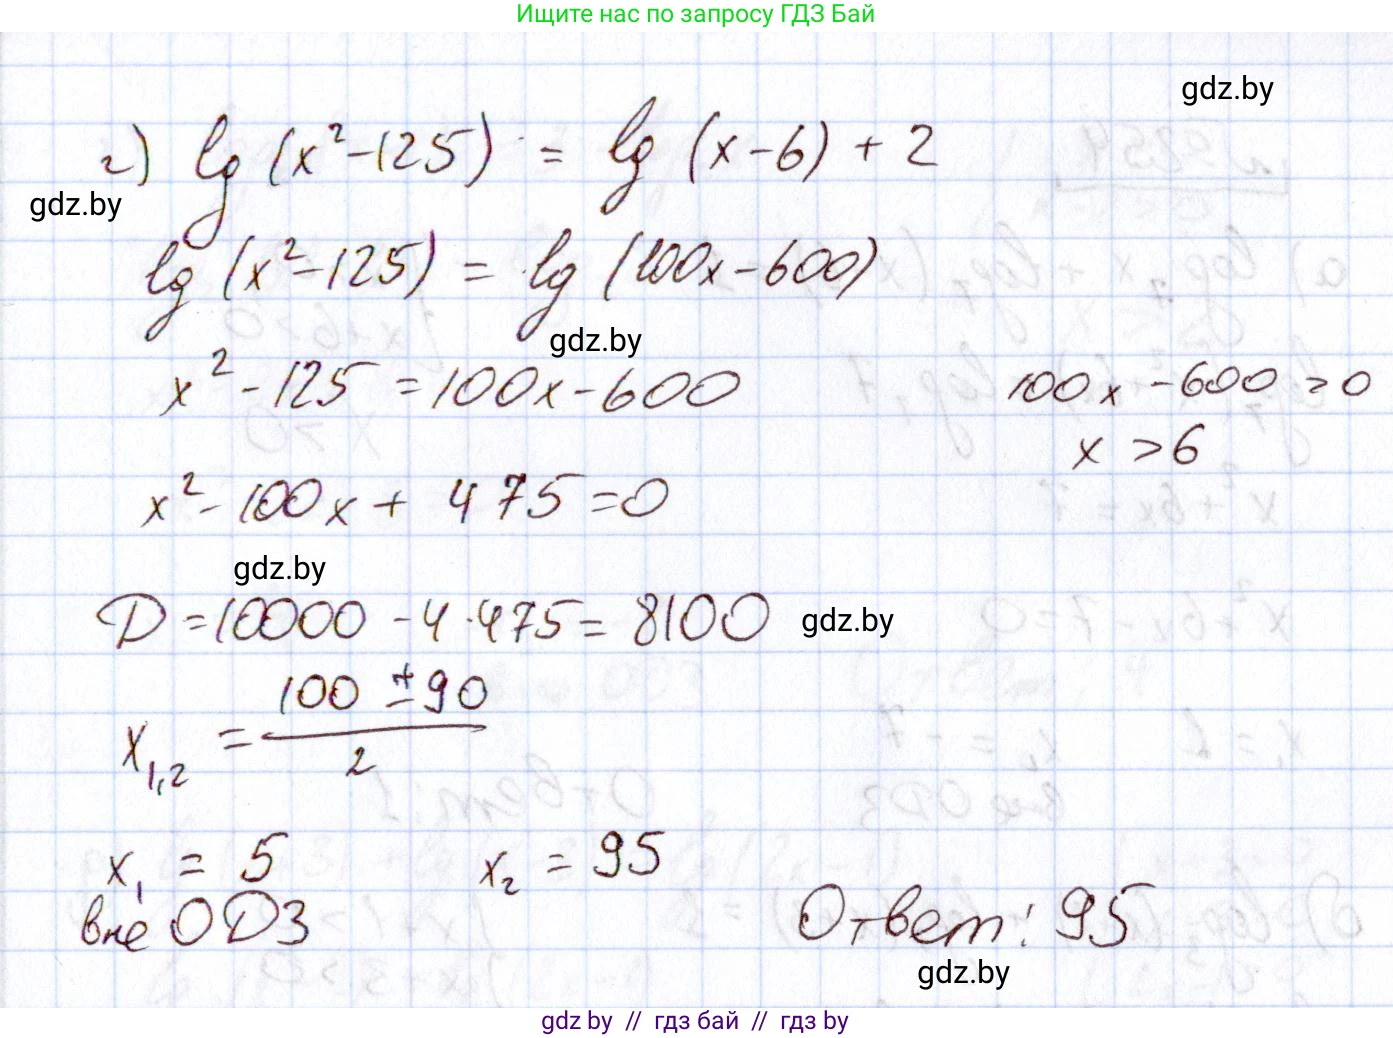 Ищите нас по запросу ГДЗ Бай
gdz.by
г) lg (x² - 125) = lg (x - 6) + 2
gdz.by
lg (x² - 125) = lg (100x - 600)
gdz.by
x² - 125 = 100x - 600
100x - 600 > 0
x > 6
x² - 100x + 475 = 0
gdz.by
D = 10000 - 4 · 475 = 8100
gdz.by
x₁,₂ = (100 ± 90) / 2
x₁ = 5 x₂ = 95
вне ОДЗ
Ответ: 95
gdz.by
gdz by // гдз бай // гдз by